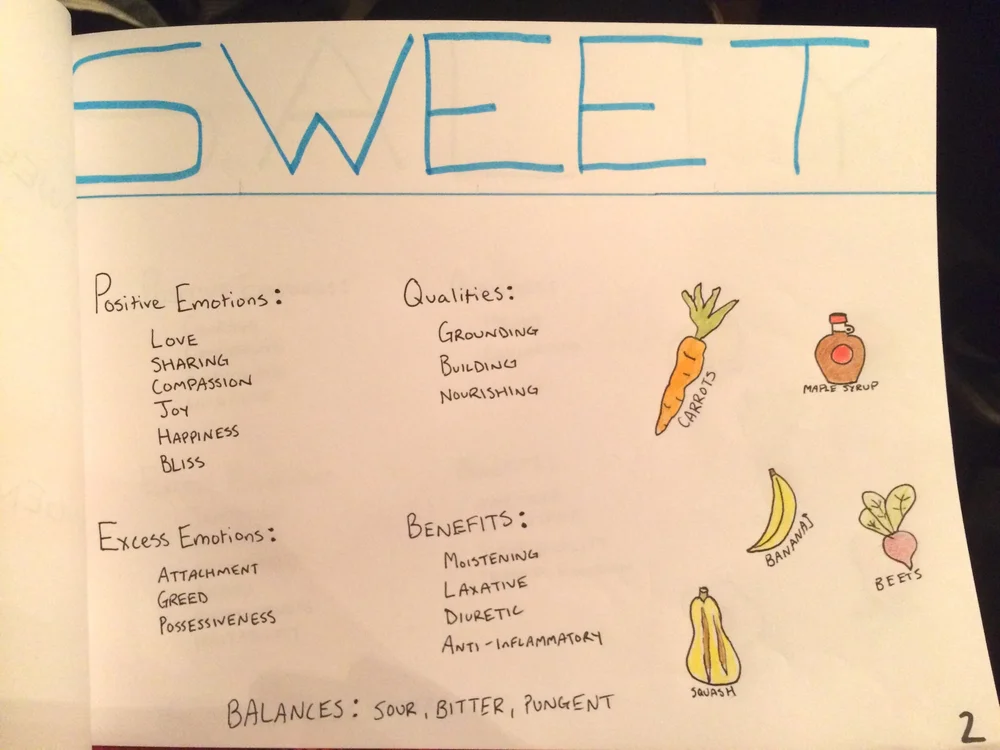 SWEET
Positive Emotions:
LOVE
SHARING
COMPASSION
JOY
HAPPINESS
BLISS
Qualities:
GROUNDING
BUILDING
NOURISHING
CARROTS
MAPLE SYRUP
Excess Emotions:
ATTACHMENT
GREED
POSSESSIVENESS
BENEFITS:
MOISTENING
LAXATIVE
DIURETIC
ANTI-INFLAMMATORY
BANANAS
BEETS
SQUASH
BALANCES: SOUR, BITTER, PUNGENT
2